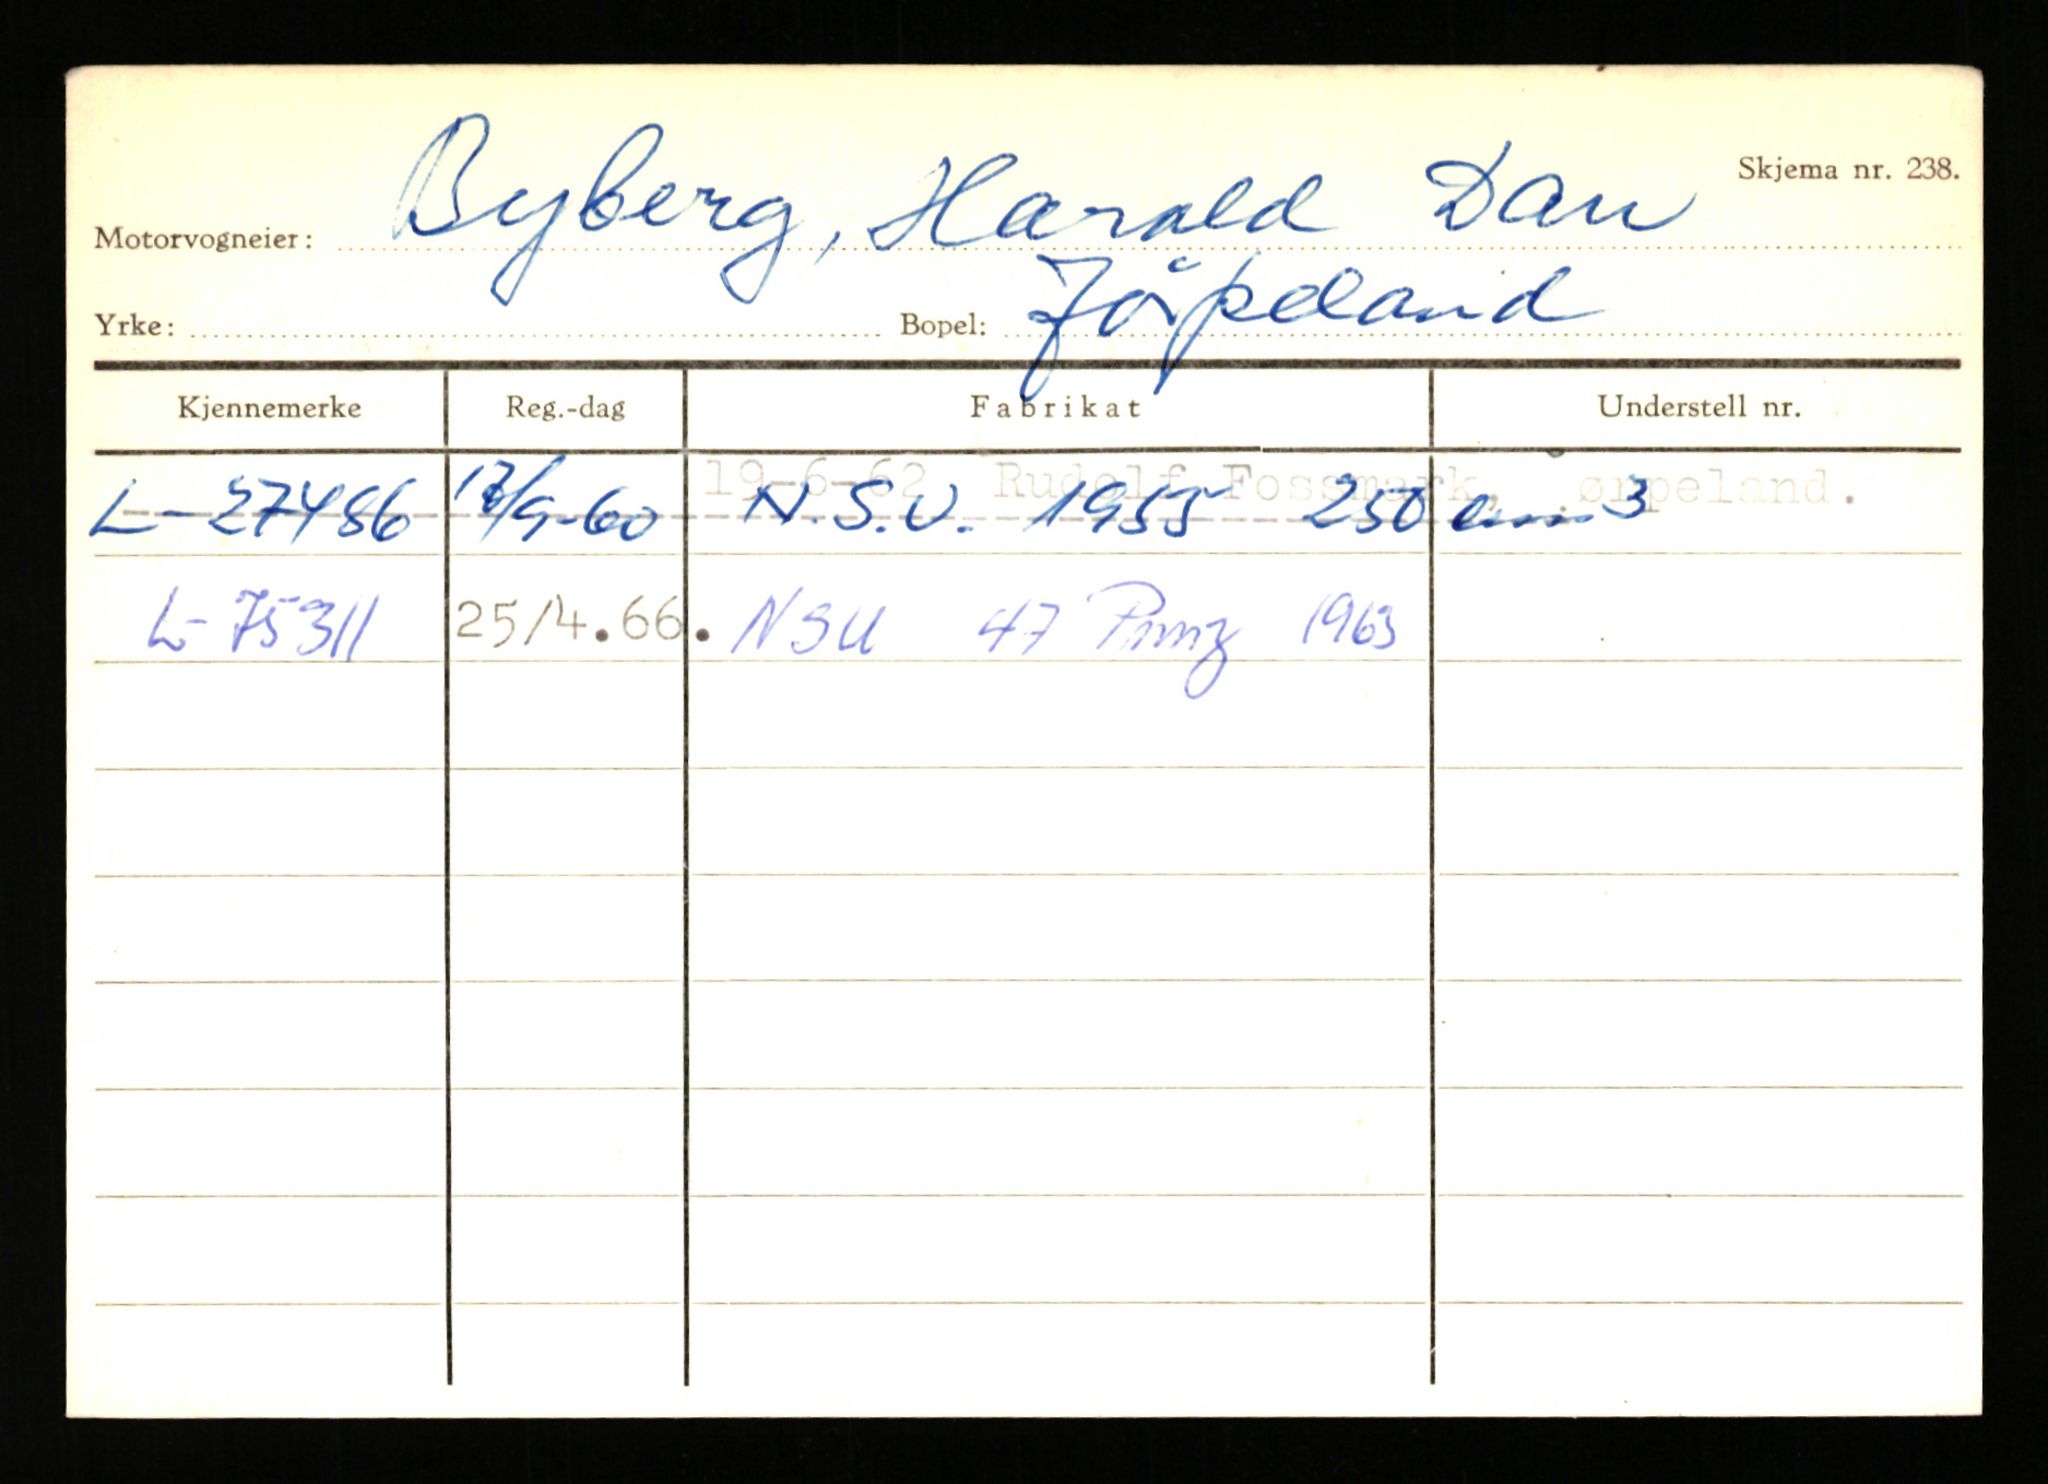 Skjema nr. 238.
Motorvogneier: Byberg, Harald Dan
Yrke: Bopel: Jörpeland
Kjennemerke Reg.-dag Fabrikat Understell nr.
19-6-62 Rudolf Fossmark, ørpeland.
L-27486 /9-60 N.S.U. 1955 250 cm3
L-75311 25/4.66. NSU 47 1963